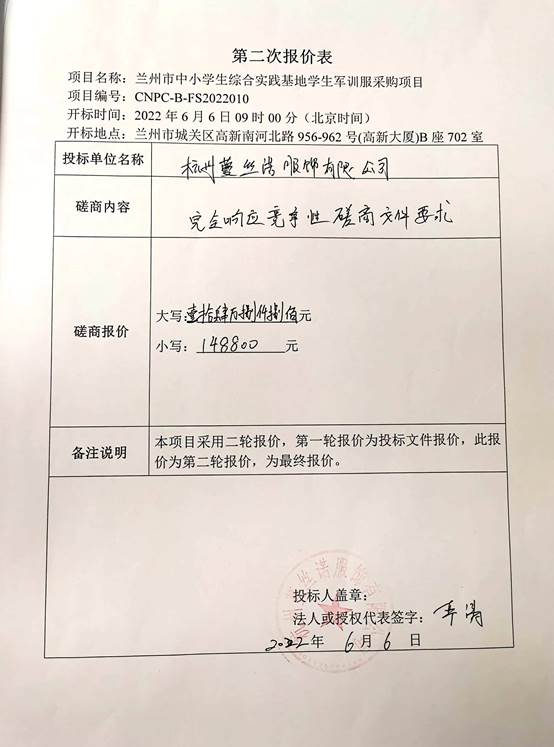 第二次报价表
项目名称：兰州市中小学生综合实践基地学生军训服采购项目
项目编号：CNPC-B-FS2022010
开标时间：2022 年 6 月 6 日 09 时 00 分（北京时间）
开标地点：兰州市城关区高新南河北路 956-962 号(高新大厦)B 座 702 室
投标单位名称 杭州蓝丝诺服饰有限公司
磋商内容 完全响应竞争性磋商文件要求
磋商报价
大写:壹拾肆万捌仟捌佰元
小写: 148800 元
备注说明 本项目采用二轮报价，第一轮报价为投标文件报价，此报
价为第二轮报价，为最终报价。
投标人盖章：
法人或授权代表签字：
2022年 6月 6日